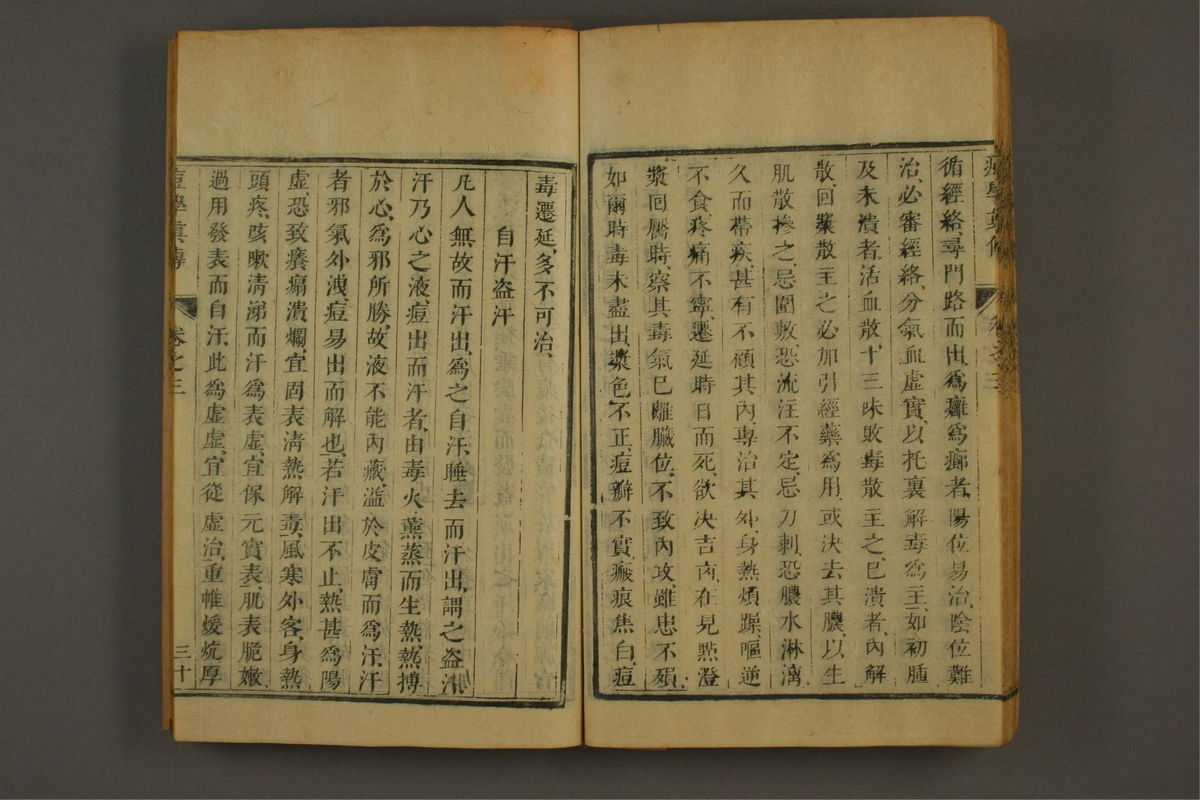 痘學真傳 卷之三
循經絡、尋門路而出、爲癰爲癤者、陽位易治、陰位難
治、必審經絡、分氣血虛實、以托裏解毒爲主、如初腫
及未潰者、活血散、十三味敗毒散主之、已潰者、內解
散、回漿散主之、必加引經藥爲用、或決去其膿、以生
肌散摻之、忌圍敷、恐流注不定、忌刀刺、恐膿水淋漓
久而帶疾、甚有不顧其內、專治其外、身熱煩躁、嘔逆
不食、疼痛不寧、遷延時日而死、欲決吉凶、在見點澄
漿回靨時、察其毒氣已離臟位、不致內攻、雖患不殞、
如爾時毒未盡出、漿色不正、痘瓣不實、瘢痕焦白、痘
毒遷延、多不可治、
自汗盗汗
凡人無故而汗出、爲之自汗、睡去而汗出、謂之盗汗、
汗乃心之液、痘出而汗者、由毒火薰蒸而生熱、熱搏
於心、爲邪所勝、故液不能內藏、溢於皮膚而爲汗、汗
者邪氣外洩、痘易出而解也、若汗出不止、熱甚爲陽
虛、恐致癢塌潰爛、宜固表清熱解毒、風寒外客、身熱
頭疼、咳嗽清涕而汗爲表虛、宜保元實表、肌表脆嫩、
過用發表而自汗、此爲虛虛、宜從虛治、重帷煖炕厚
痘學真傳 卷之三 三十